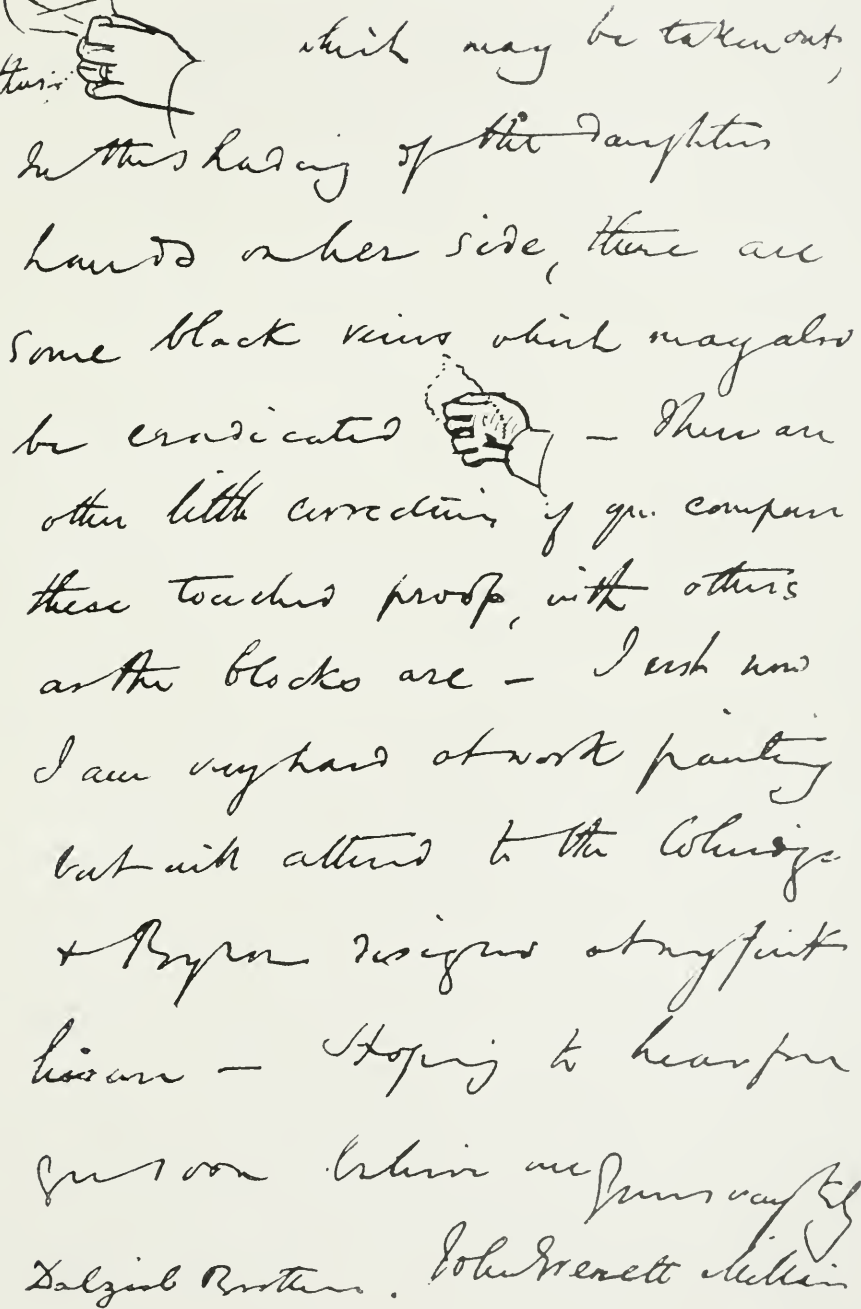 which may be taken out,
thus
In the shading of the daughters
hands on her side, there are
some black veins which may also
be eradicated — There are
other little corrections if you compare
these touched proofs, with others
as the blocks are — Just now
I am very hard at work painting
but will attend to the Coleridge
& Byron designs at my first
leisure — Hoping to hear from
you soon believe me Yours very truly
Dalziel Brothers. John Everett Millais